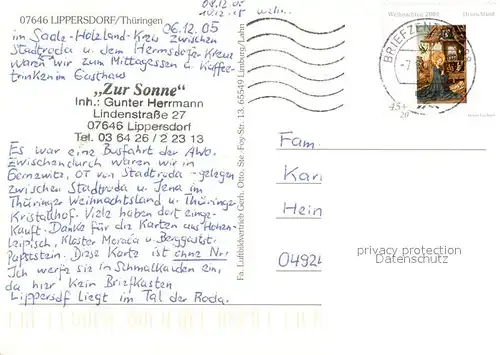 07646 LIPPERSDORF/Thüringen
06.12.05
im Saale-Holzland-Kreis zwischen
Stadtroda u. dem Hermsdorfer Kreuz
waren wir zum Mittagessen u. Kaffee-
trinken im Gasthaus
„Zur Sonne"
Inh.: Gunter Herrmann
Lindenstraße 27
07646 Lippersdorf
Tel. 03 64 26 / 2 23 13
Es war eine Busfahrt der AWo.
Zwischendurch waren wir in
Gernewitz, OT von Stadtroda - gelegen
zwischen Stadtroda u. Jena im
Thüringer Weihnachtsland u. Thüringer
Kristallhof. Viele haben dort einge-
kauft. Danke für die Karten aus Hohen-
leipisch, Kloster Morada u. Berggastst.
Papststein. Diese Karte ist ohne Nr.
Ich werfe sie in Schmalkalden ein,
da hier kein Briefkasten
Lippersdf liegt im Tal der Roda.
Fa. Luftbildvertrieb Gerh. Otto, Ste-Foy-Str. 13, 65549 Limburg/Lahn
Weihnachten
Deutschland
BRIEFZEN
45+
20
Fam.
Karl
Hein
04924
privacy protection
Datenschutz